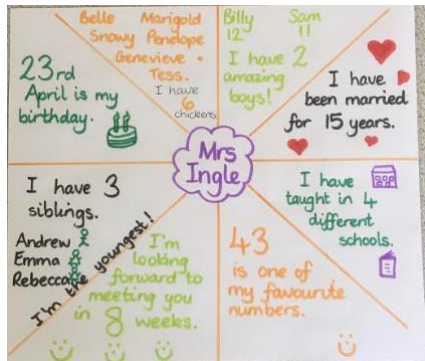 Belle Marigold
Snowy Penelope
Genevieve +
Tess.
I have
6
chickens
Billy Sam
12 11
I have 2
amazing
boys!
I have
been married
for 15 years.
I have
taught in 4
different
schools.
43
is one of
my favourite
numbers.
I'm
looking
forward to
meeting you
in 8 weeks.
I have 3
siblings.
Andrew
Emma
Rebecca
I'm the youngest!
23rd
April is my
birthday.
Mrs
Ingle